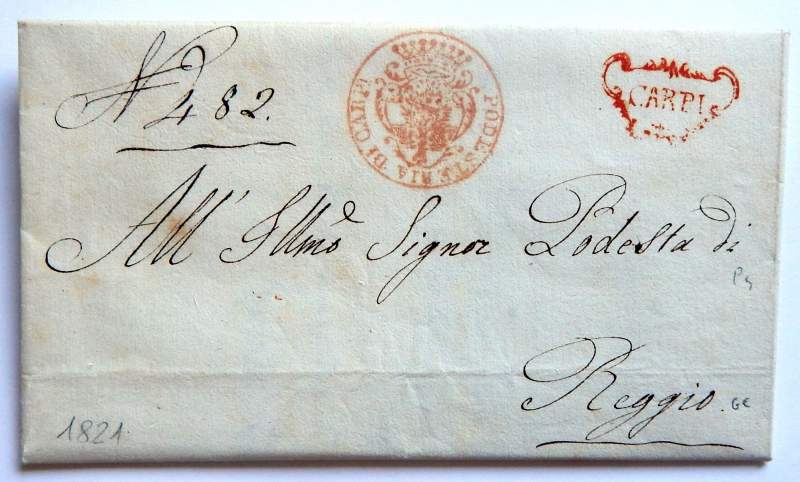 N 482.
PODESTERIA DI CARPI
CARPI
All' Illmo Signor Podestà di
Reggio.
1821